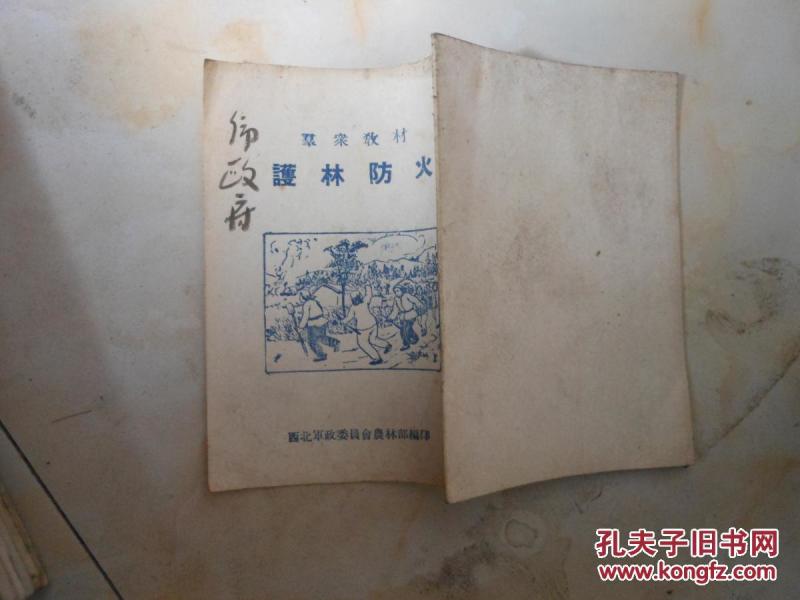 羣衆敎材
護林防火
政府
西北軍政委員會農林部編印
孔夫子旧书网
www.kongfz.com